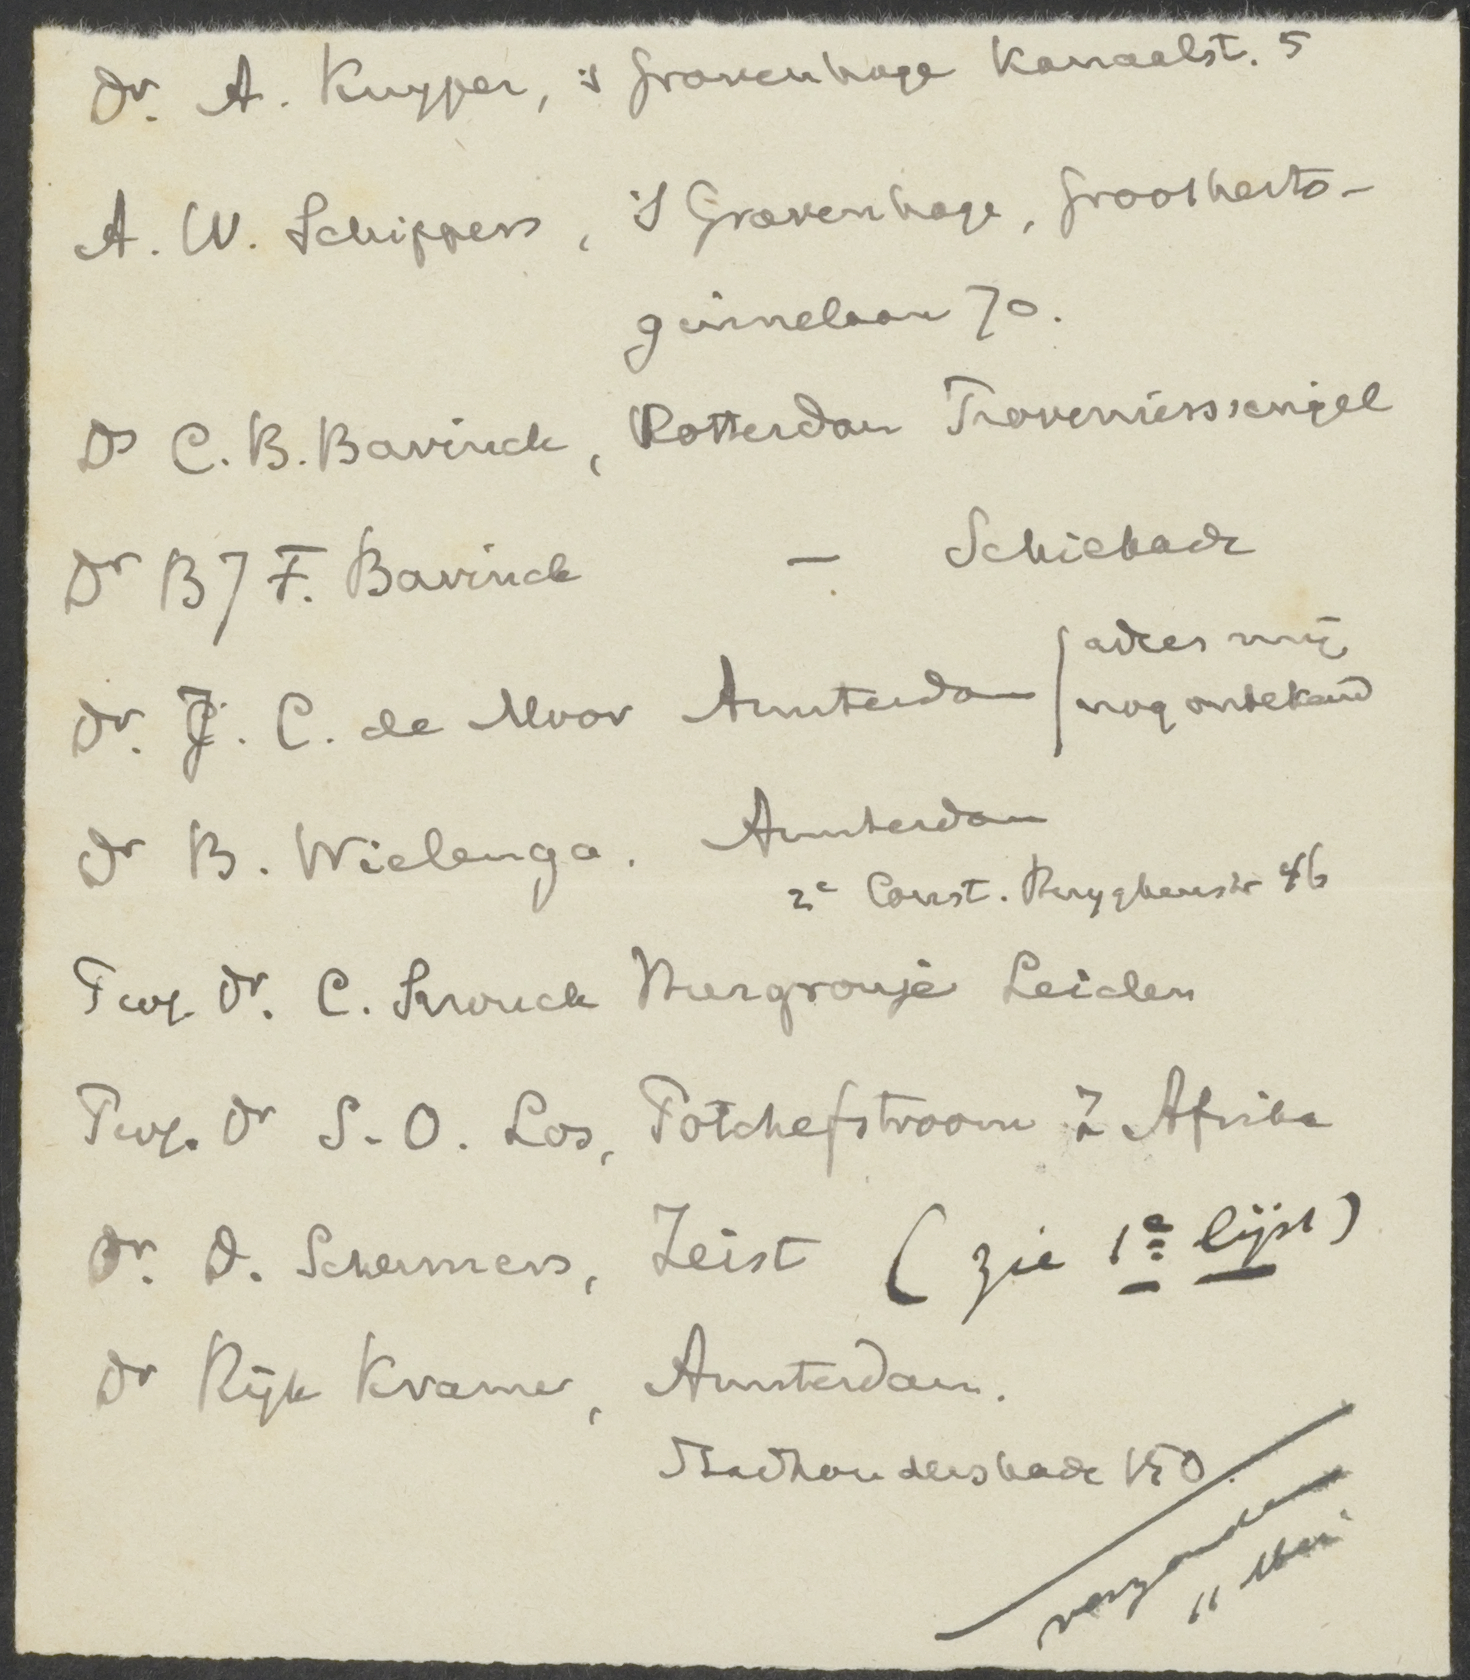 Dr. A. Kuyper, 's Gravenhage Kanaalst. 5
A. W. Schippers, 's Gravenhage, Grootherto-
ginnelaan 70.
Ds C. B. Bavinck, Rotterdam Provenierssingel
Dr B J F. Bavinck — Schiekade
Dr. J. C. de Moor Amsterdam adres mij
nog onbekend
Dr B. Wielenga. Amsterdam
2e Const. Huyghenstr 46
Prof. Dr. C. Snouck Hurgronje Leiden
Prof. Dr S. O. Los, Potchefstroom Z Afrika
Dr. D. Schermers, Zeist (zie 1e lijst)
Dr Rijk Kramer, Amsterdam.
Stadhouderskade 150.
verzonden
11 Mei